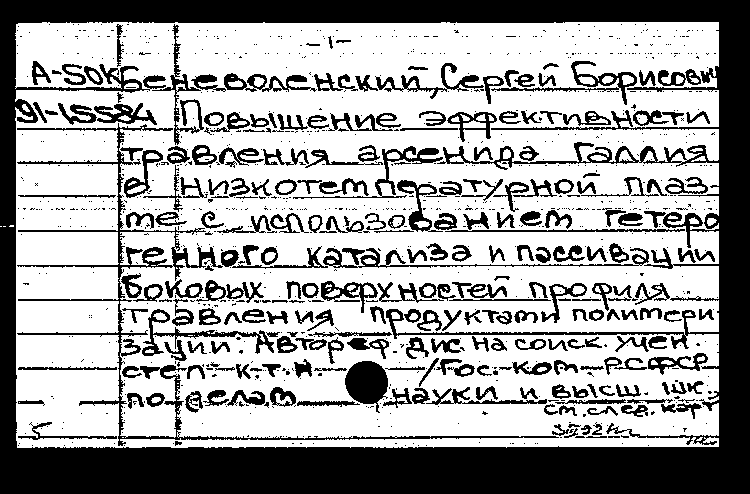 -1-
А-50К Беневоленский, Сергей Борисович
91-15584 Повышение эффективности
травления арсенида галлия
в низкотемпературной плаз-
ме с использованием гетеро
генного катализа и пассивации
боковых поверхностей профиля
травления продуктами полимери-
зации: Автореф. дис. на соиск. учен.
степ. к.т.н. /Гос. ком. РСФСР
по делам науки и высш. шк.
см. след. карт
5